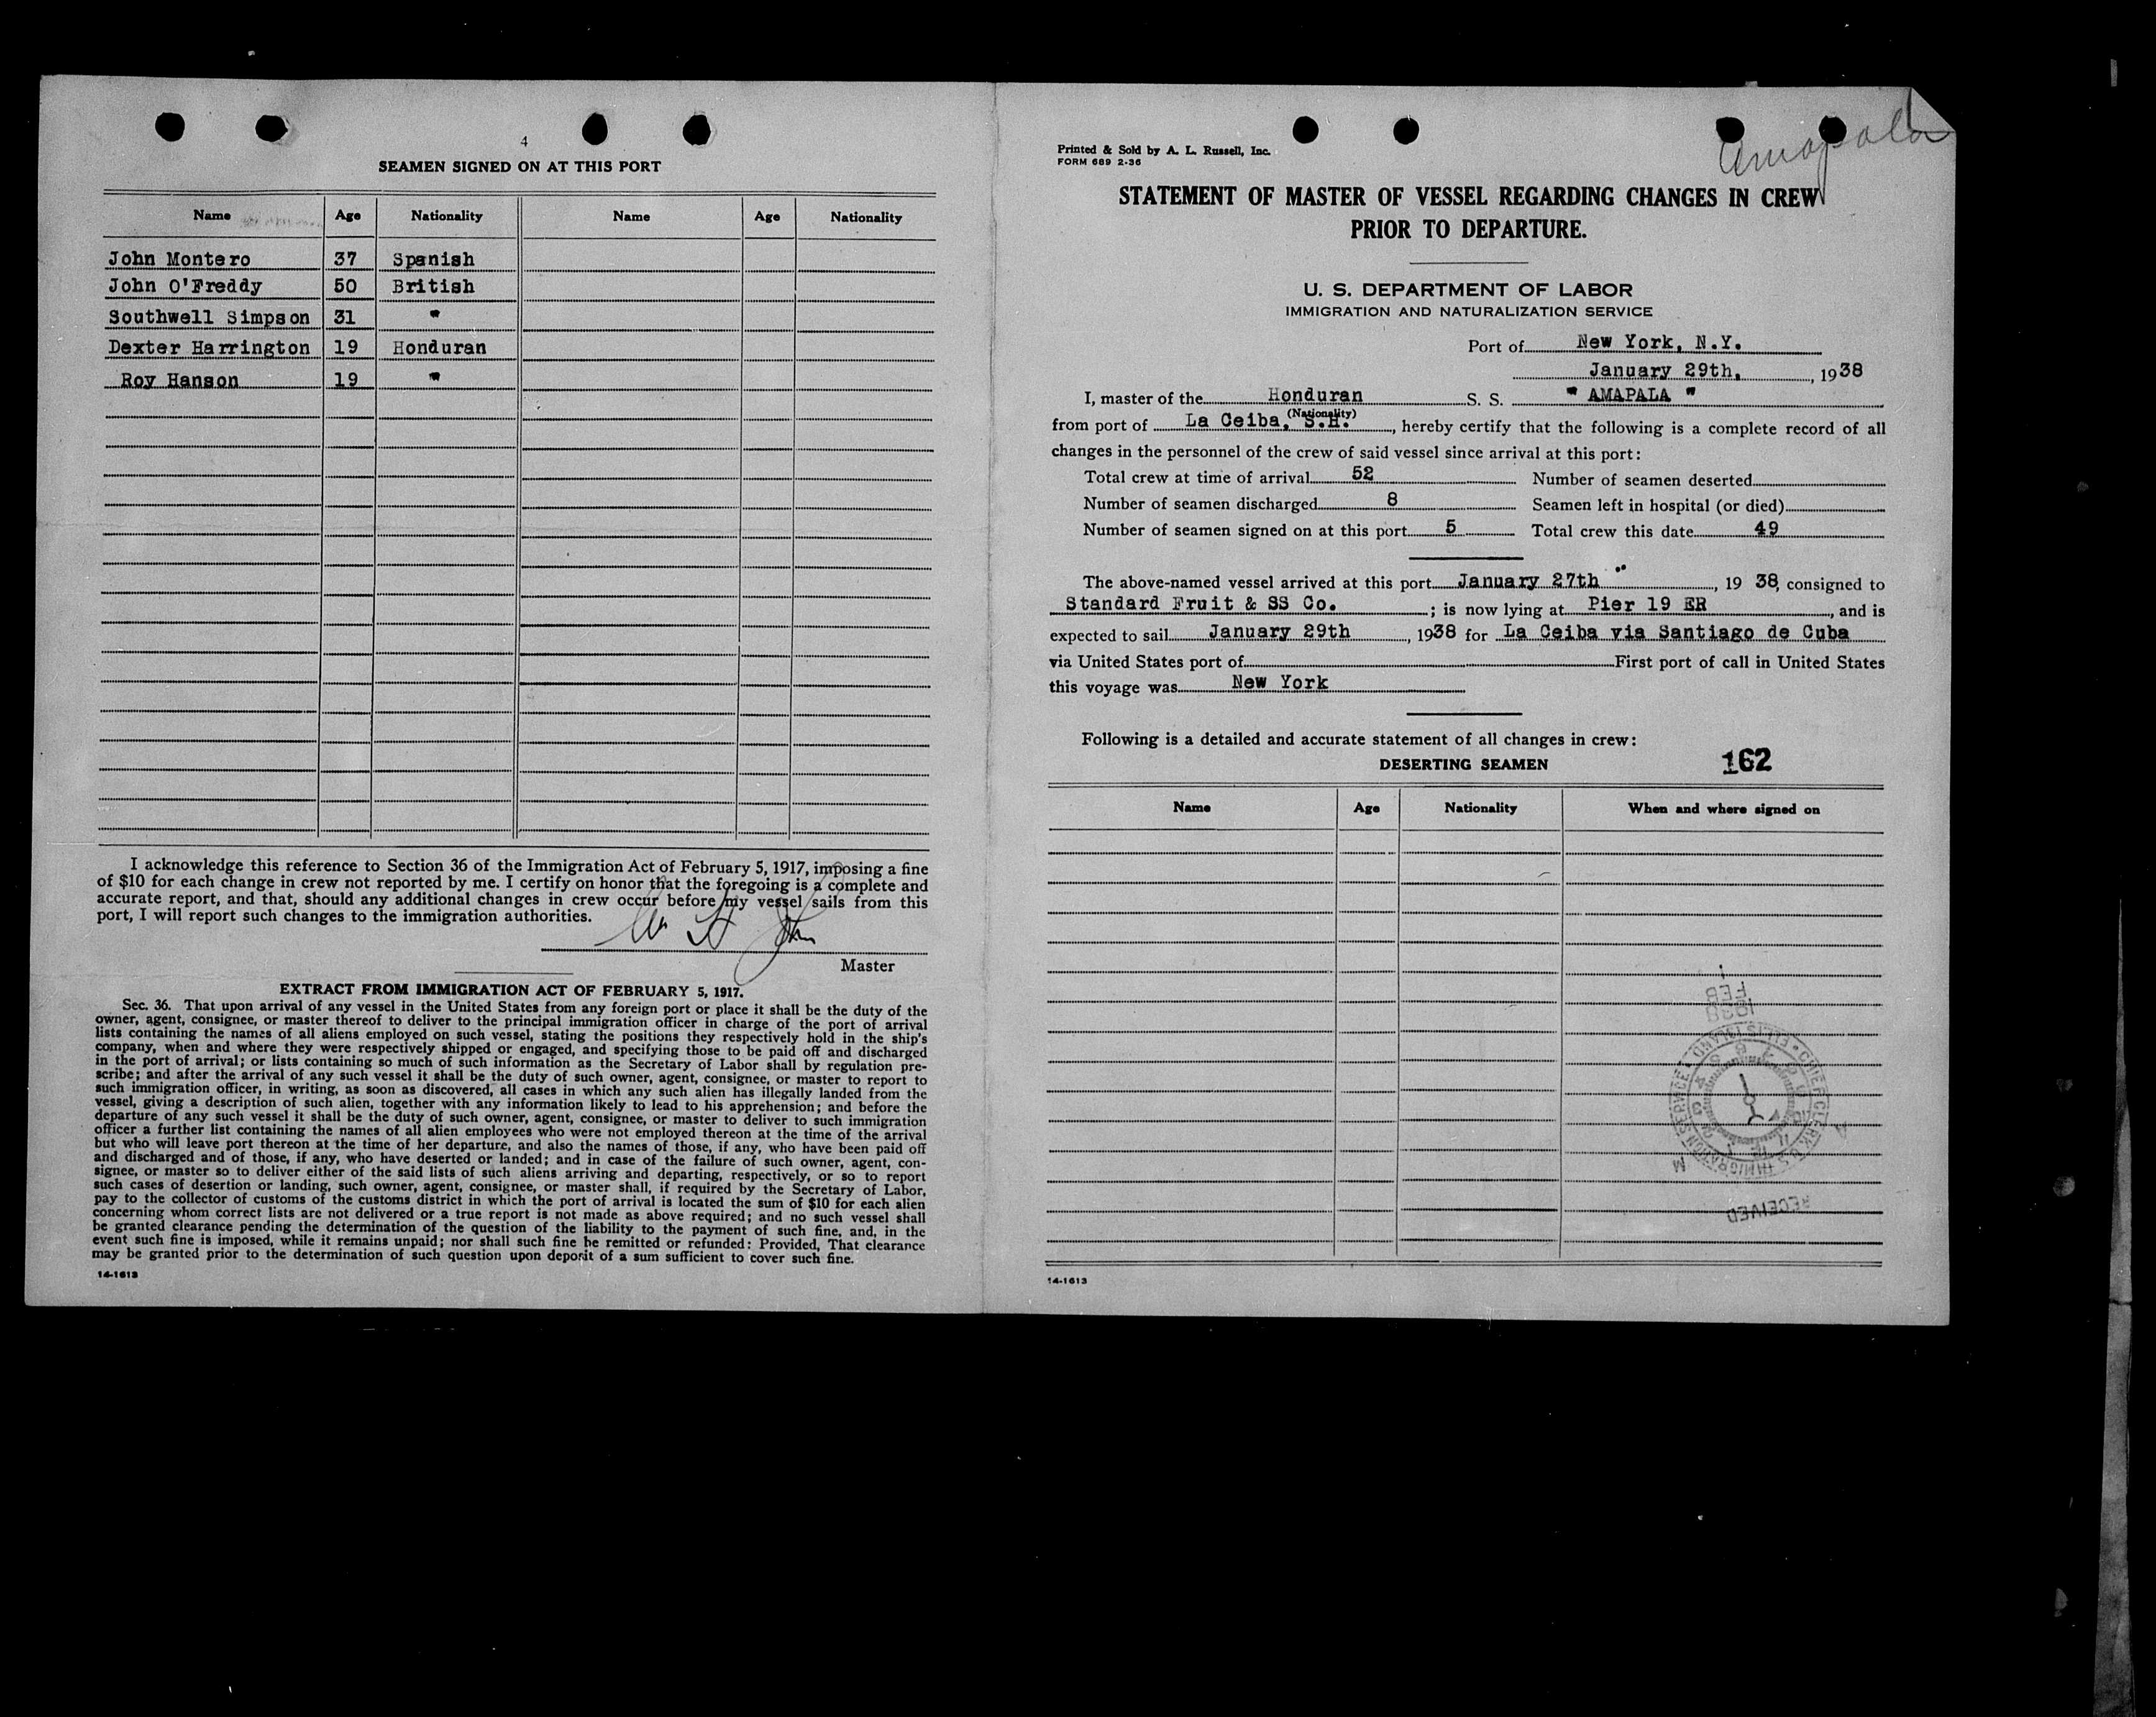 4
SEAMEN SIGNED ON AT THIS PORT
Name Age Nationality Name Age Nationality
John Montero 37 Spanish
John O'Freddy 50 British
Southwell Simpson 31 "
Dexter Harrington 19 Honduran
Roy Hanson 19 "
I acknowledge this reference to Section 36 of the Immigration Act of February 5, 1917, imposing a fine
of $10 for each change in crew not reported by me. I certify on honor that the foregoing is a complete and
accurate report, and that, should any additional changes in crew occur before my vessel sails from this
port, I will report such changes to the immigration authorities.
Master
EXTRACT FROM IMMIGRATION ACT OF FEBRUARY 5, 1917.
Sec. 36. That upon arrival of any vessel in the United States from any foreign port or place it shall be the duty of the
owner, agent, consignee, or master thereof to deliver to the principal immigration officer in charge of the port of arrival
lists containing the names of all aliens employed on such vessel, stating the positions they respectively hold in the ship's
company, when and where they were respectively shipped or engaged, and specifying those to be paid off and discharged
in the port of arrival; or lists containing so much of such information as the Secretary of Labor shall by regulation pre-
scribe; and after the arrival of any such vessel it shall be the duty of such owner, agent, consignee, or master to report to
such immigration officer, in writing, as soon as discovered, all cases in which any such alien has illegally landed from the
vessel, giving a description of such alien, together with any information likely to lead to his apprehension; and before the
departure of any such vessel it shall be the duty of such owner, agent, consignee, or master to deliver to such immigration
officer a further list containing the names of all alien employees who were not employed thereon at the time of the arrival
but who will leave port thereon at the time of her departure, and also the names of those, if any, who have been paid off
and discharged and of those, if any, who have deserted or landed; and in case of the failure of such owner, agent, con-
signee, or master so to deliver either of the said lists of such aliens arriving and departing, respectively, or so to report
such cases of desertion or landing, such owner, agent, consignee, or master shall, if required by the Secretary of Labor,
pay to the collector of customs of the customs district in which the port of arrival is located the sum of $10 for each alien
concerning whom correct lists are not delivered or a true report is not made as above required; and no such vessel shall
be granted clearance pending the determination of the question of the liability to the payment of such fine, and, in the
event such fine is imposed, while it remains unpaid; nor shall such fine be remitted or refunded: Provided, That clearance
may be granted prior to the determination of such question upon deposit of a sum sufficient to cover such fine.
14-1613
Amapala
Printed & Sold by A. L. Russell, Inc.
FORM 689 2-36
STATEMENT OF MASTER OF VESSEL REGARDING CHANGES IN CREW
PRIOR TO DEPARTURE.
U. S. DEPARTMENT OF LABOR
IMMIGRATION AND NATURALIZATION SERVICE
Port of New York, N.Y.
January 29th, , 1938
I, master of the Honduran S. S. " AMAPALA "
(Nationality)
from port of La Ceiba, S.H. , hereby certify that the following is a complete record of all
changes in the personnel of the crew of said vessel since arrival at this port:
Total crew at time of arrival 52 Number of seamen deserted
Number of seamen discharged 8 Seamen left in hospital (or died)
Number of seamen signed on at this port 5 Total crew this date 49
The above-named vessel arrived at this port January 27th , 19 38, consigned to
Standard Fruit & SS Co. ; is now lying at Pier 19 ER , and is
expected to sail January 29th , 1938 for La Ceiba via Santiago de Cuba
via United States port of First port of call in United States
this voyage was New York
Following is a detailed and accurate statement of all changes in crew:
DESERTING SEAMEN 162
Name Age Nationality When and where signed on
FEB
1938
CHIEF CLERK U S IMMIGRATION SERVICE ELLIS ISLAND
RECEIVED
14-1613